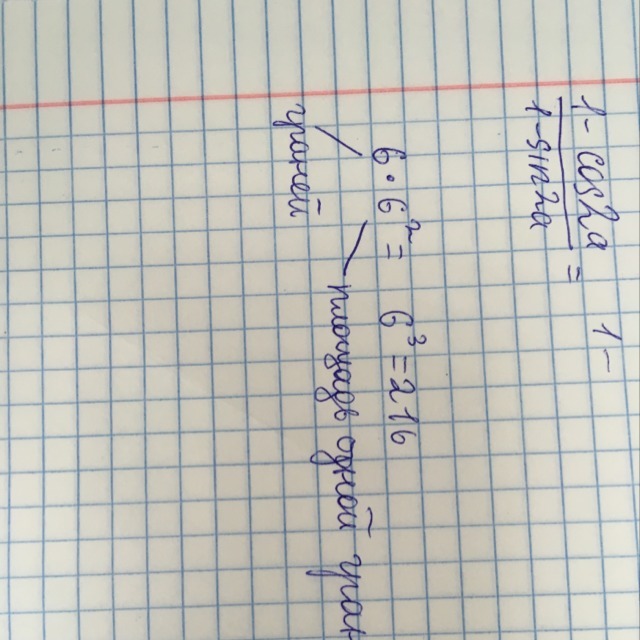 1 - cos2a
1 - sin2a = 1 -
6 · 6² = 6³ = 216
площадь одной гран
граней